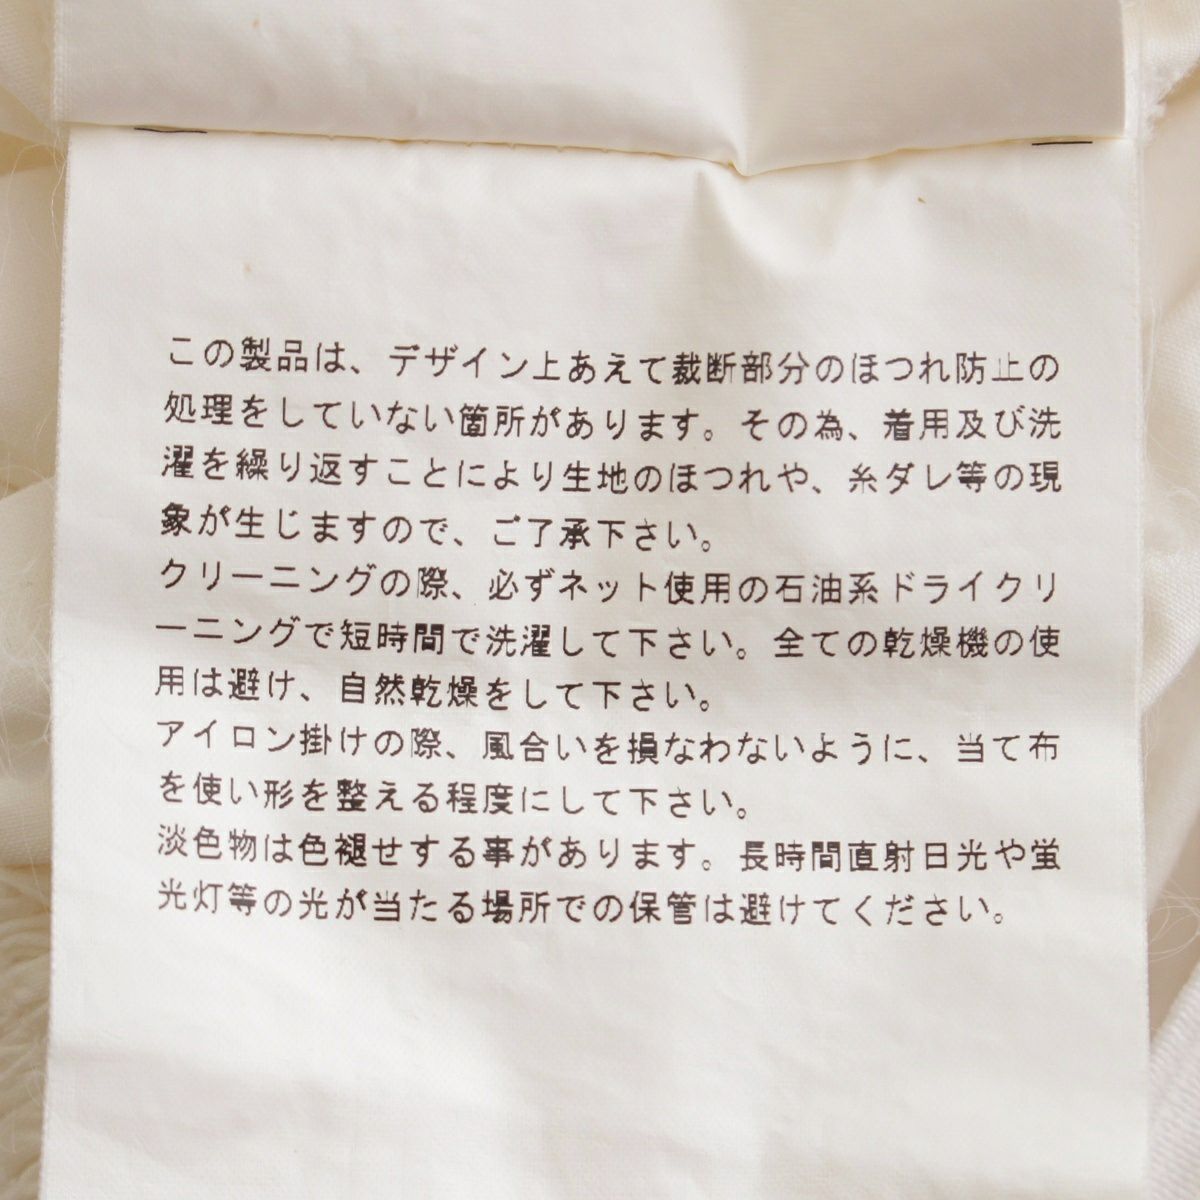 この製品は、デザイン上あえて裁断部分のほつれ防止の
処理をしていない箇所があります。その為、着用及び洗
濯を繰り返すことにより生地のほつれや、糸ダレ等の現
象が生じますので、ご了承下さい。
クリーニングの際、必ずネット使用の石油系ドライクリ
ーニングで短時間で洗濯して下さい。全ての乾燥機の使
用は避け、自然乾燥をして下さい。
アイロン掛けの際、風合いを損なわないように、当て布
を使い形を整える程度にして下さい。
淡色物は色褪せする事があります。長時間直射日光や蛍
光灯等の光が当たる場所での保管は避けてください。